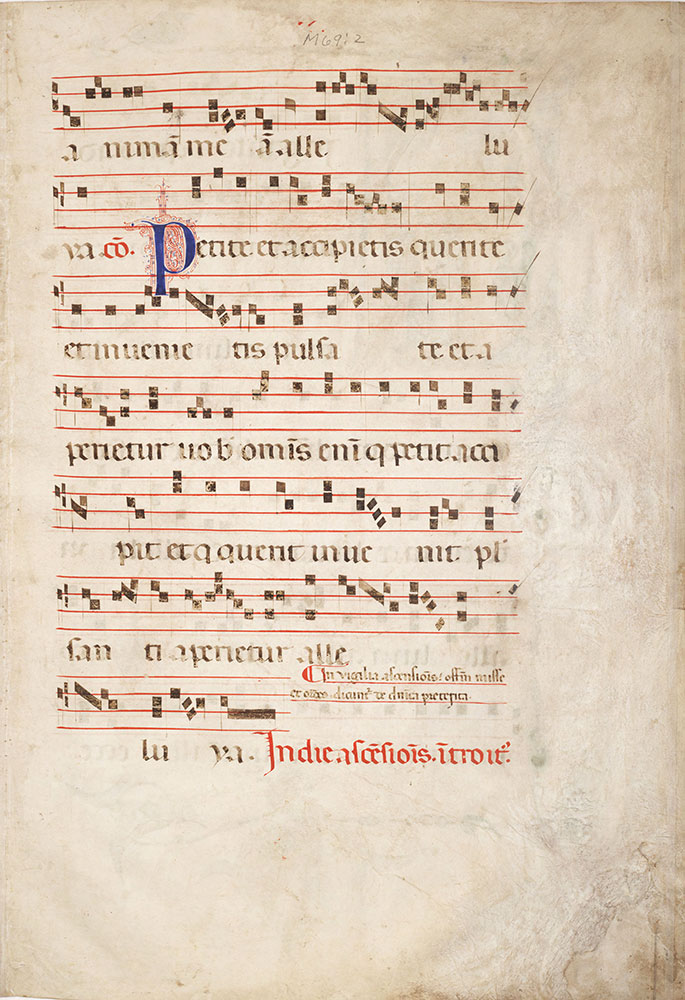 M69:2
a nimā me ā alle lu
ya. cō. Petite et accipietis querite
et inuenie tis pulsa te et a
perietur uob omīs enī q petit acci
pit et q querit inue nit pli
san ti aperietur alle
In uigilia ascensiōis. offm misse
et om̄es. dicunt de dnīca preterita.
lu ya. In die ascēsiōis. ītroit.